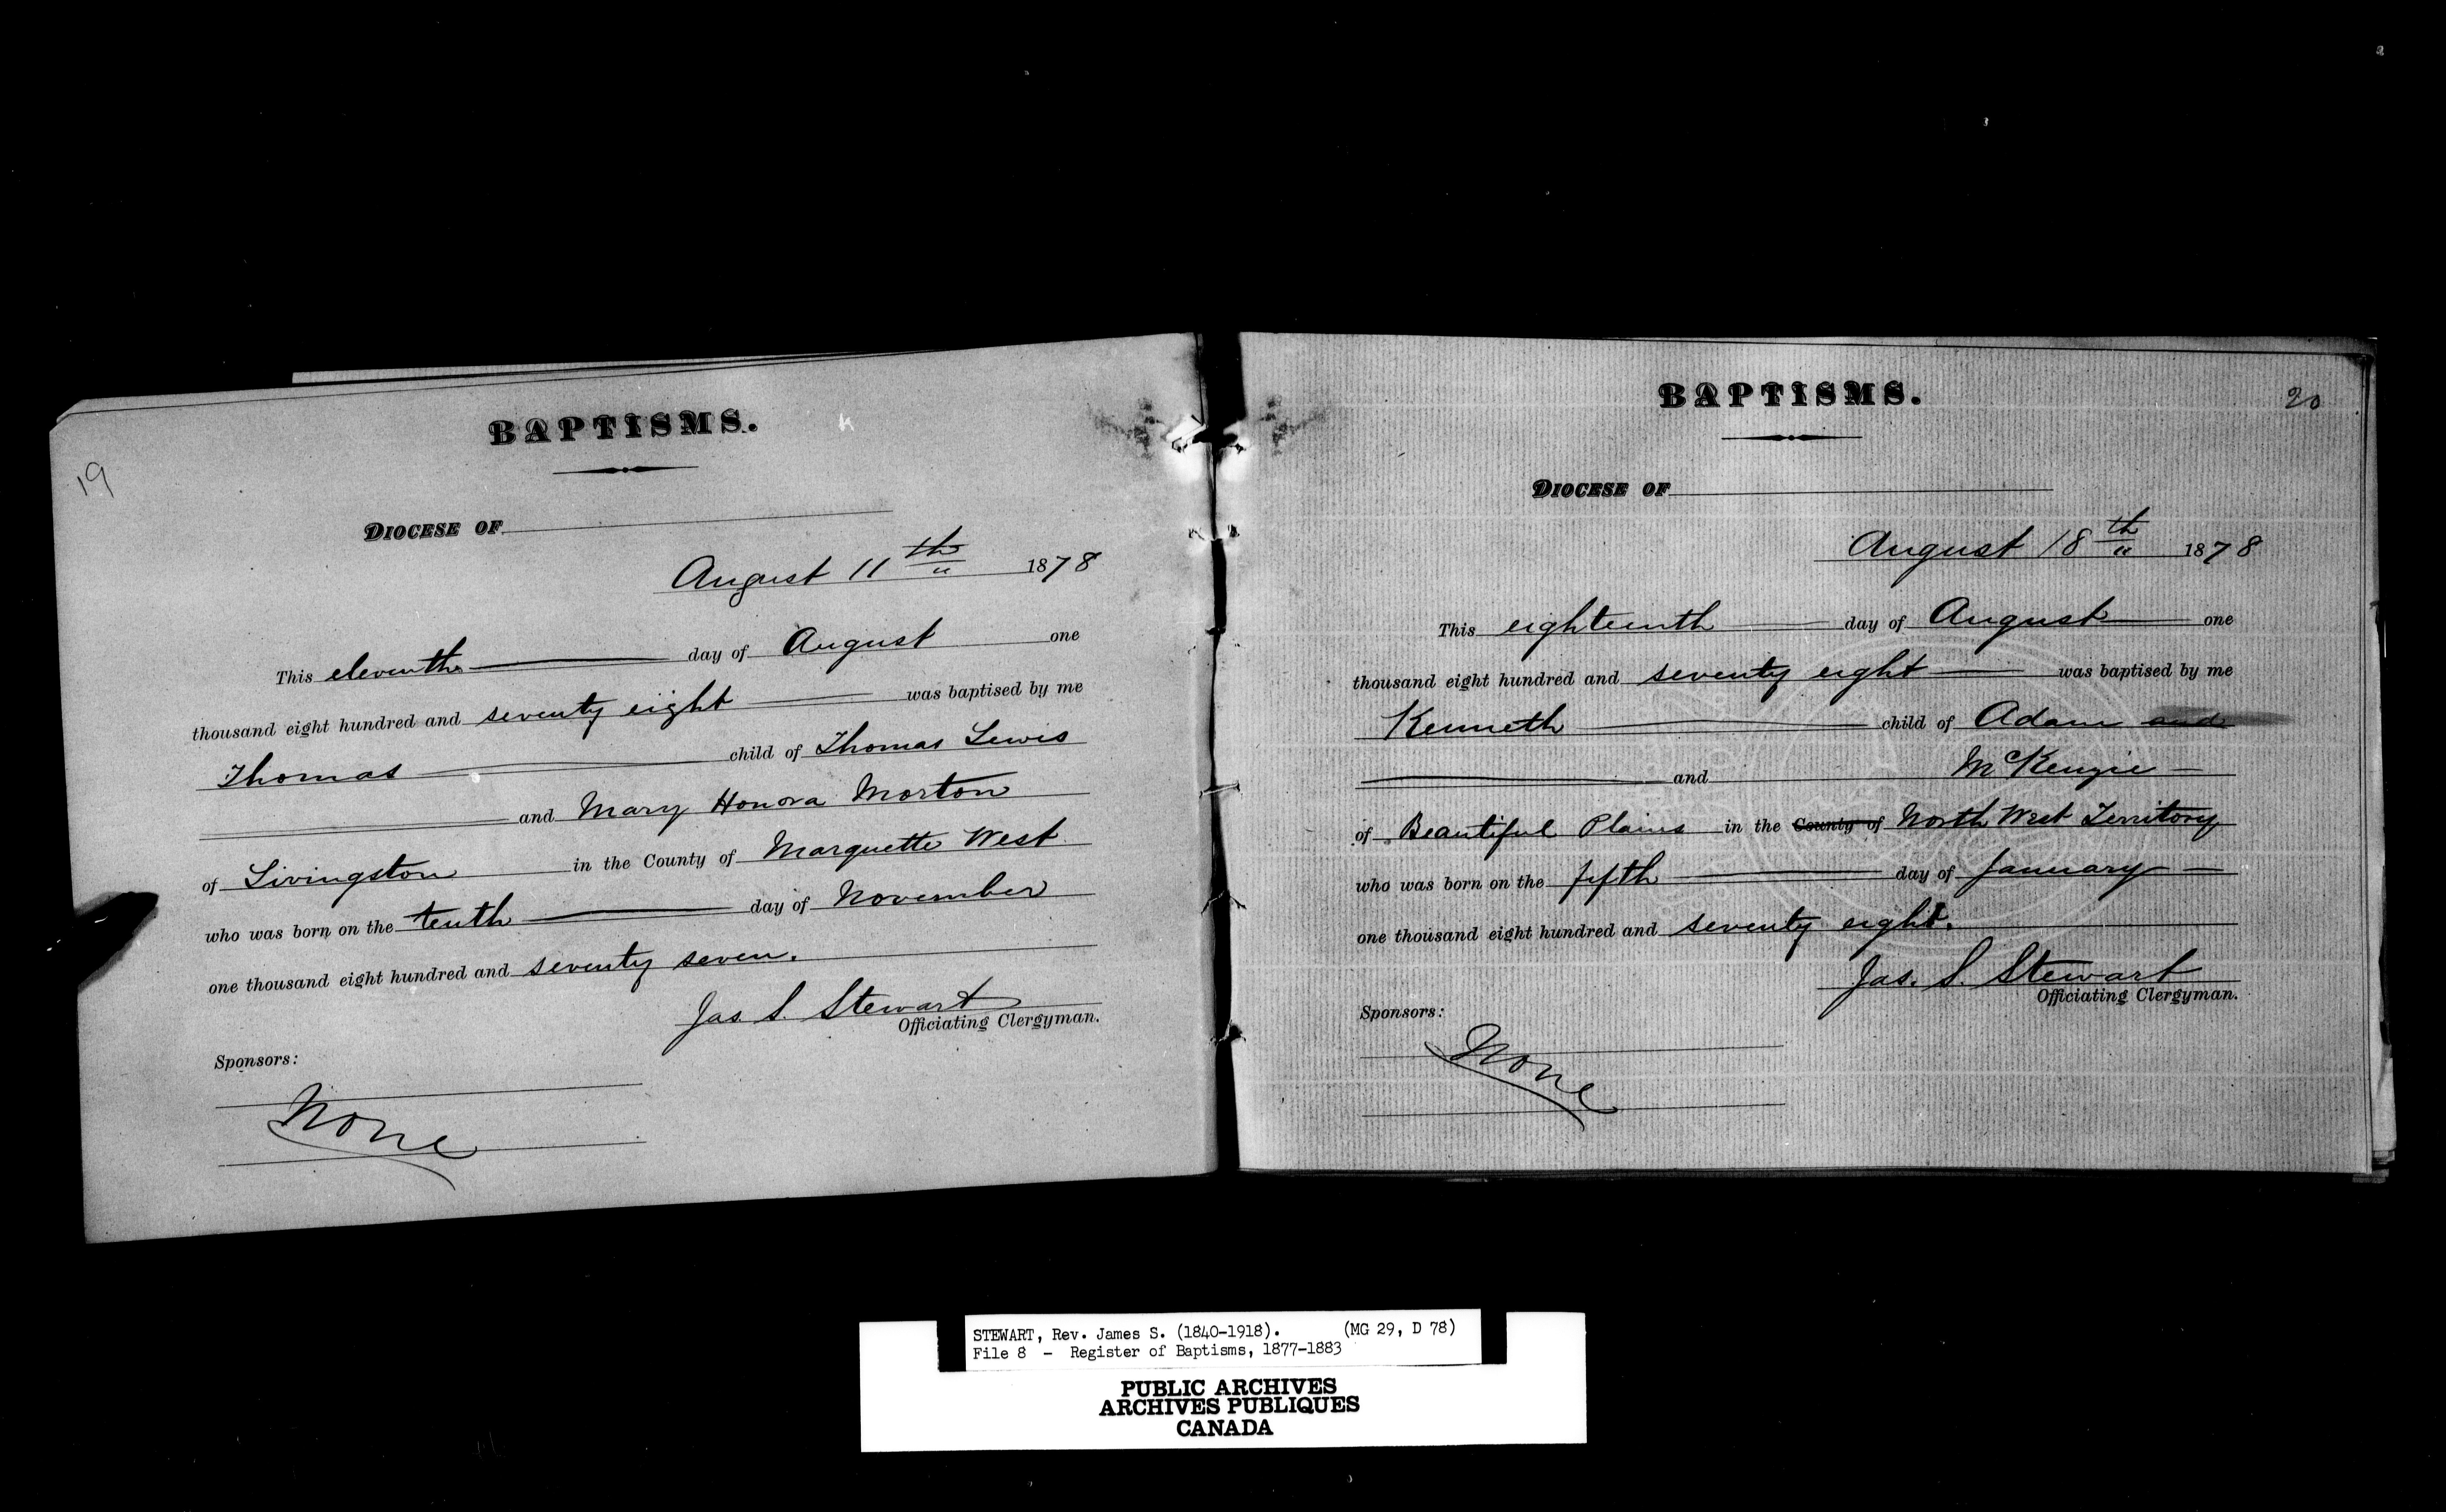 19
BAPTISMS.
DIOCESE OF
August 11th 1878
This eleventh day of August one
thousand eight hundred and seventy eight was baptised by me
Thomas child of Thomas Lewis
and Mary Honora Morton
of Livingston in the County of Marquette West
who was born on the tenth day of November
one thousand eight hundred and seventy seven.
Jas. S. Stewart
Officiating Clergyman.
Sponsors:
None
20
BAPTISMS.
DIOCESE OF
August 18th 1878
This eighteenth day of August one
thousand eight hundred and seventy eight was baptised by me
Kenneth child of Adam and
and McKenzie
of Beautiful Plains in the County of North West Territory
who was born on the fifth day of January
one thousand eight hundred and seventy eight.
Jas. S. Stewart
Officiating Clergyman.
Sponsors:
None
STEWART, Rev. James S. (1840-1918). (MG 29, D 78)
File 8 - Register of Baptisms, 1877-1883
PUBLIC ARCHIVES
ARCHIVES PUBLIQUES
CANADA